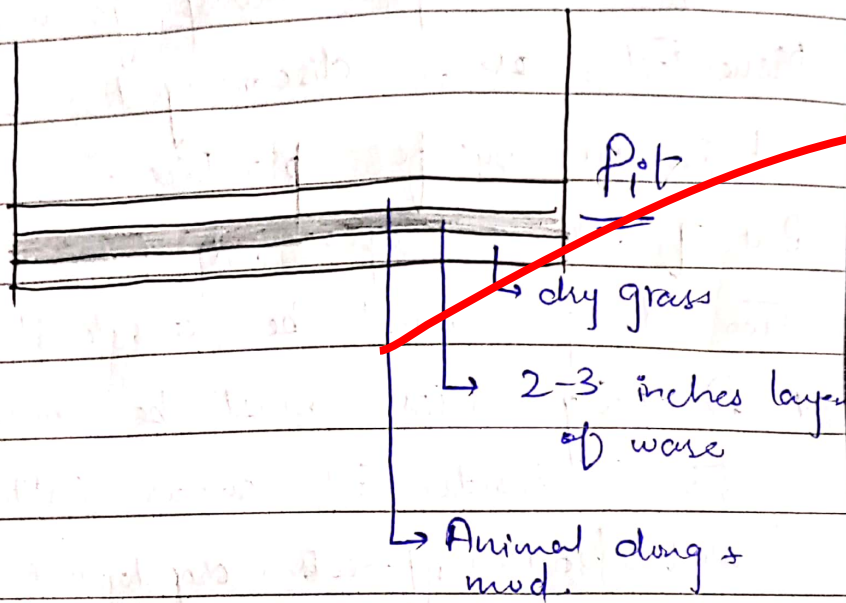 Pit
dry grass
2-3 inches layer
of wase
Animal dung +
mud.